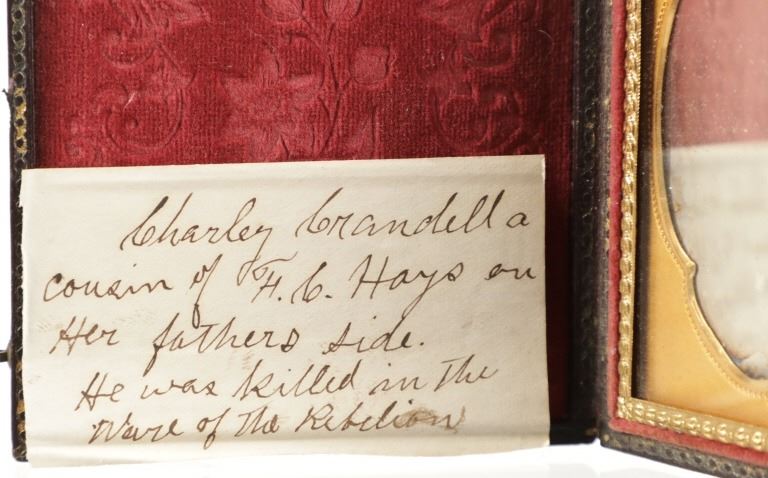 Charley Crandell a
cousin of F. C. Hays on
Her fathers side.
He was killed in the
Ware of the Rebelion